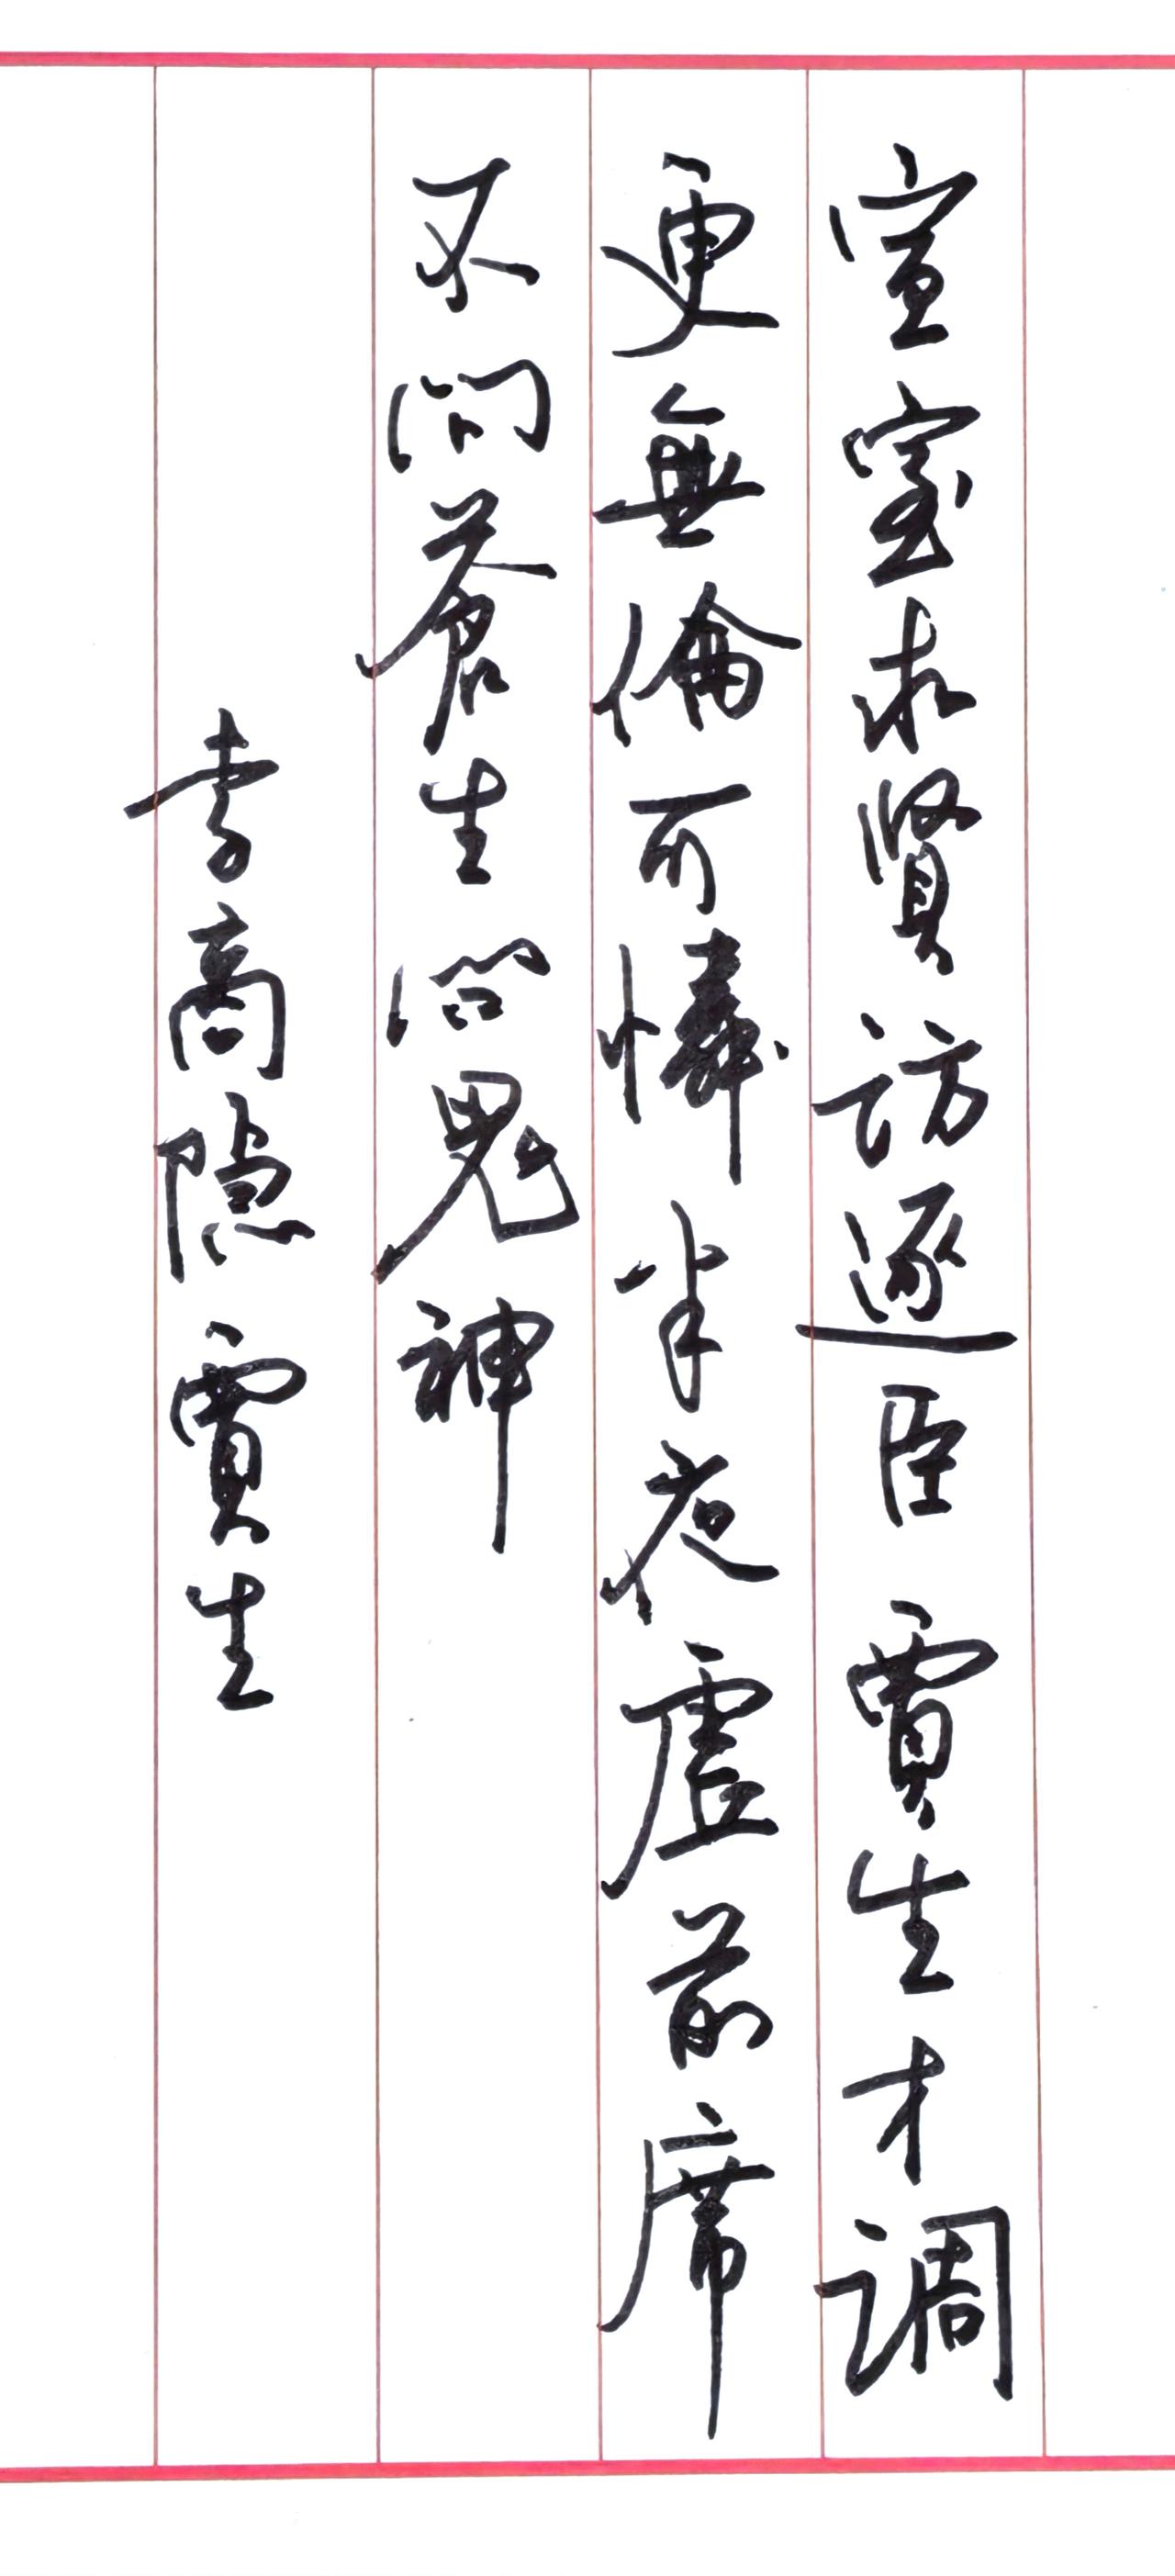 宣室求賢訪逐臣賈生才調
更無倫可憐半夜虛前席
不問蒼生問鬼神
李商隱賈生